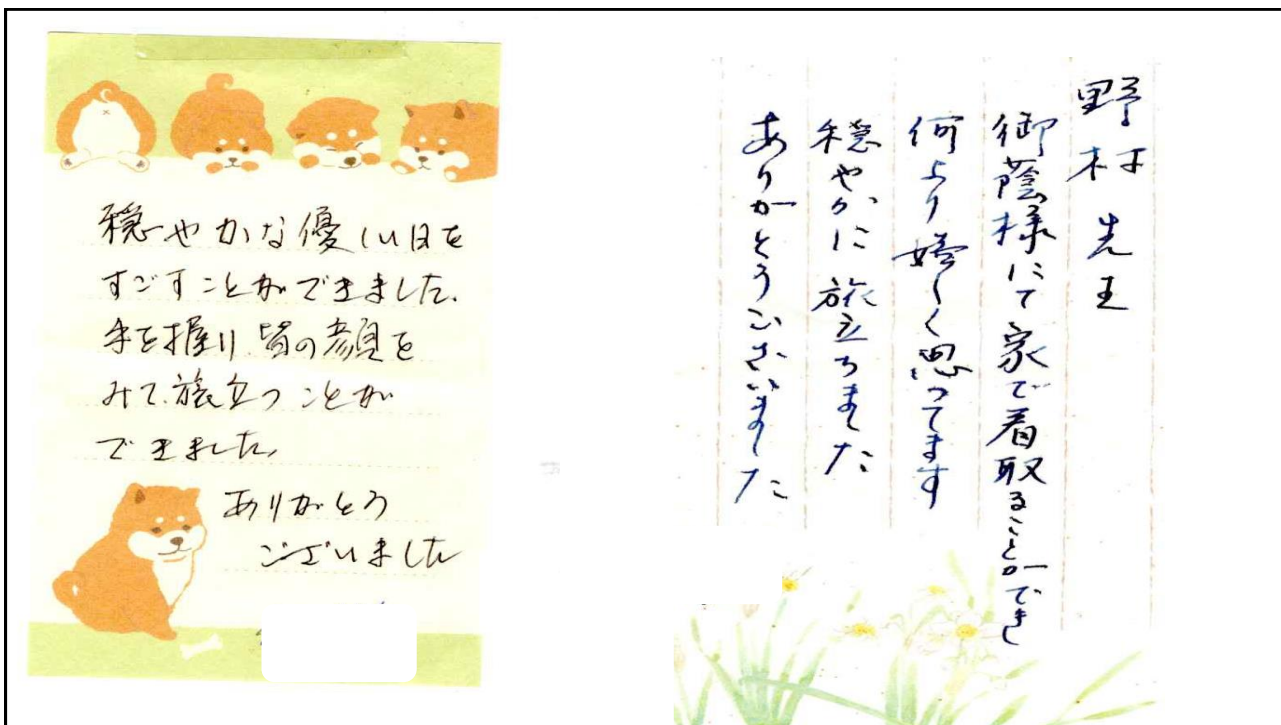 穏やかな優しい日を
すごすことができました.
手を握り 皆の顔を
みて、旅立つ ことが
できました,
ありがとう
ございました
野村先生
御蔭様にて家で看取ることができ
何より嬉しく思ってます
穏やかに旅立ちました
ありがとうございました